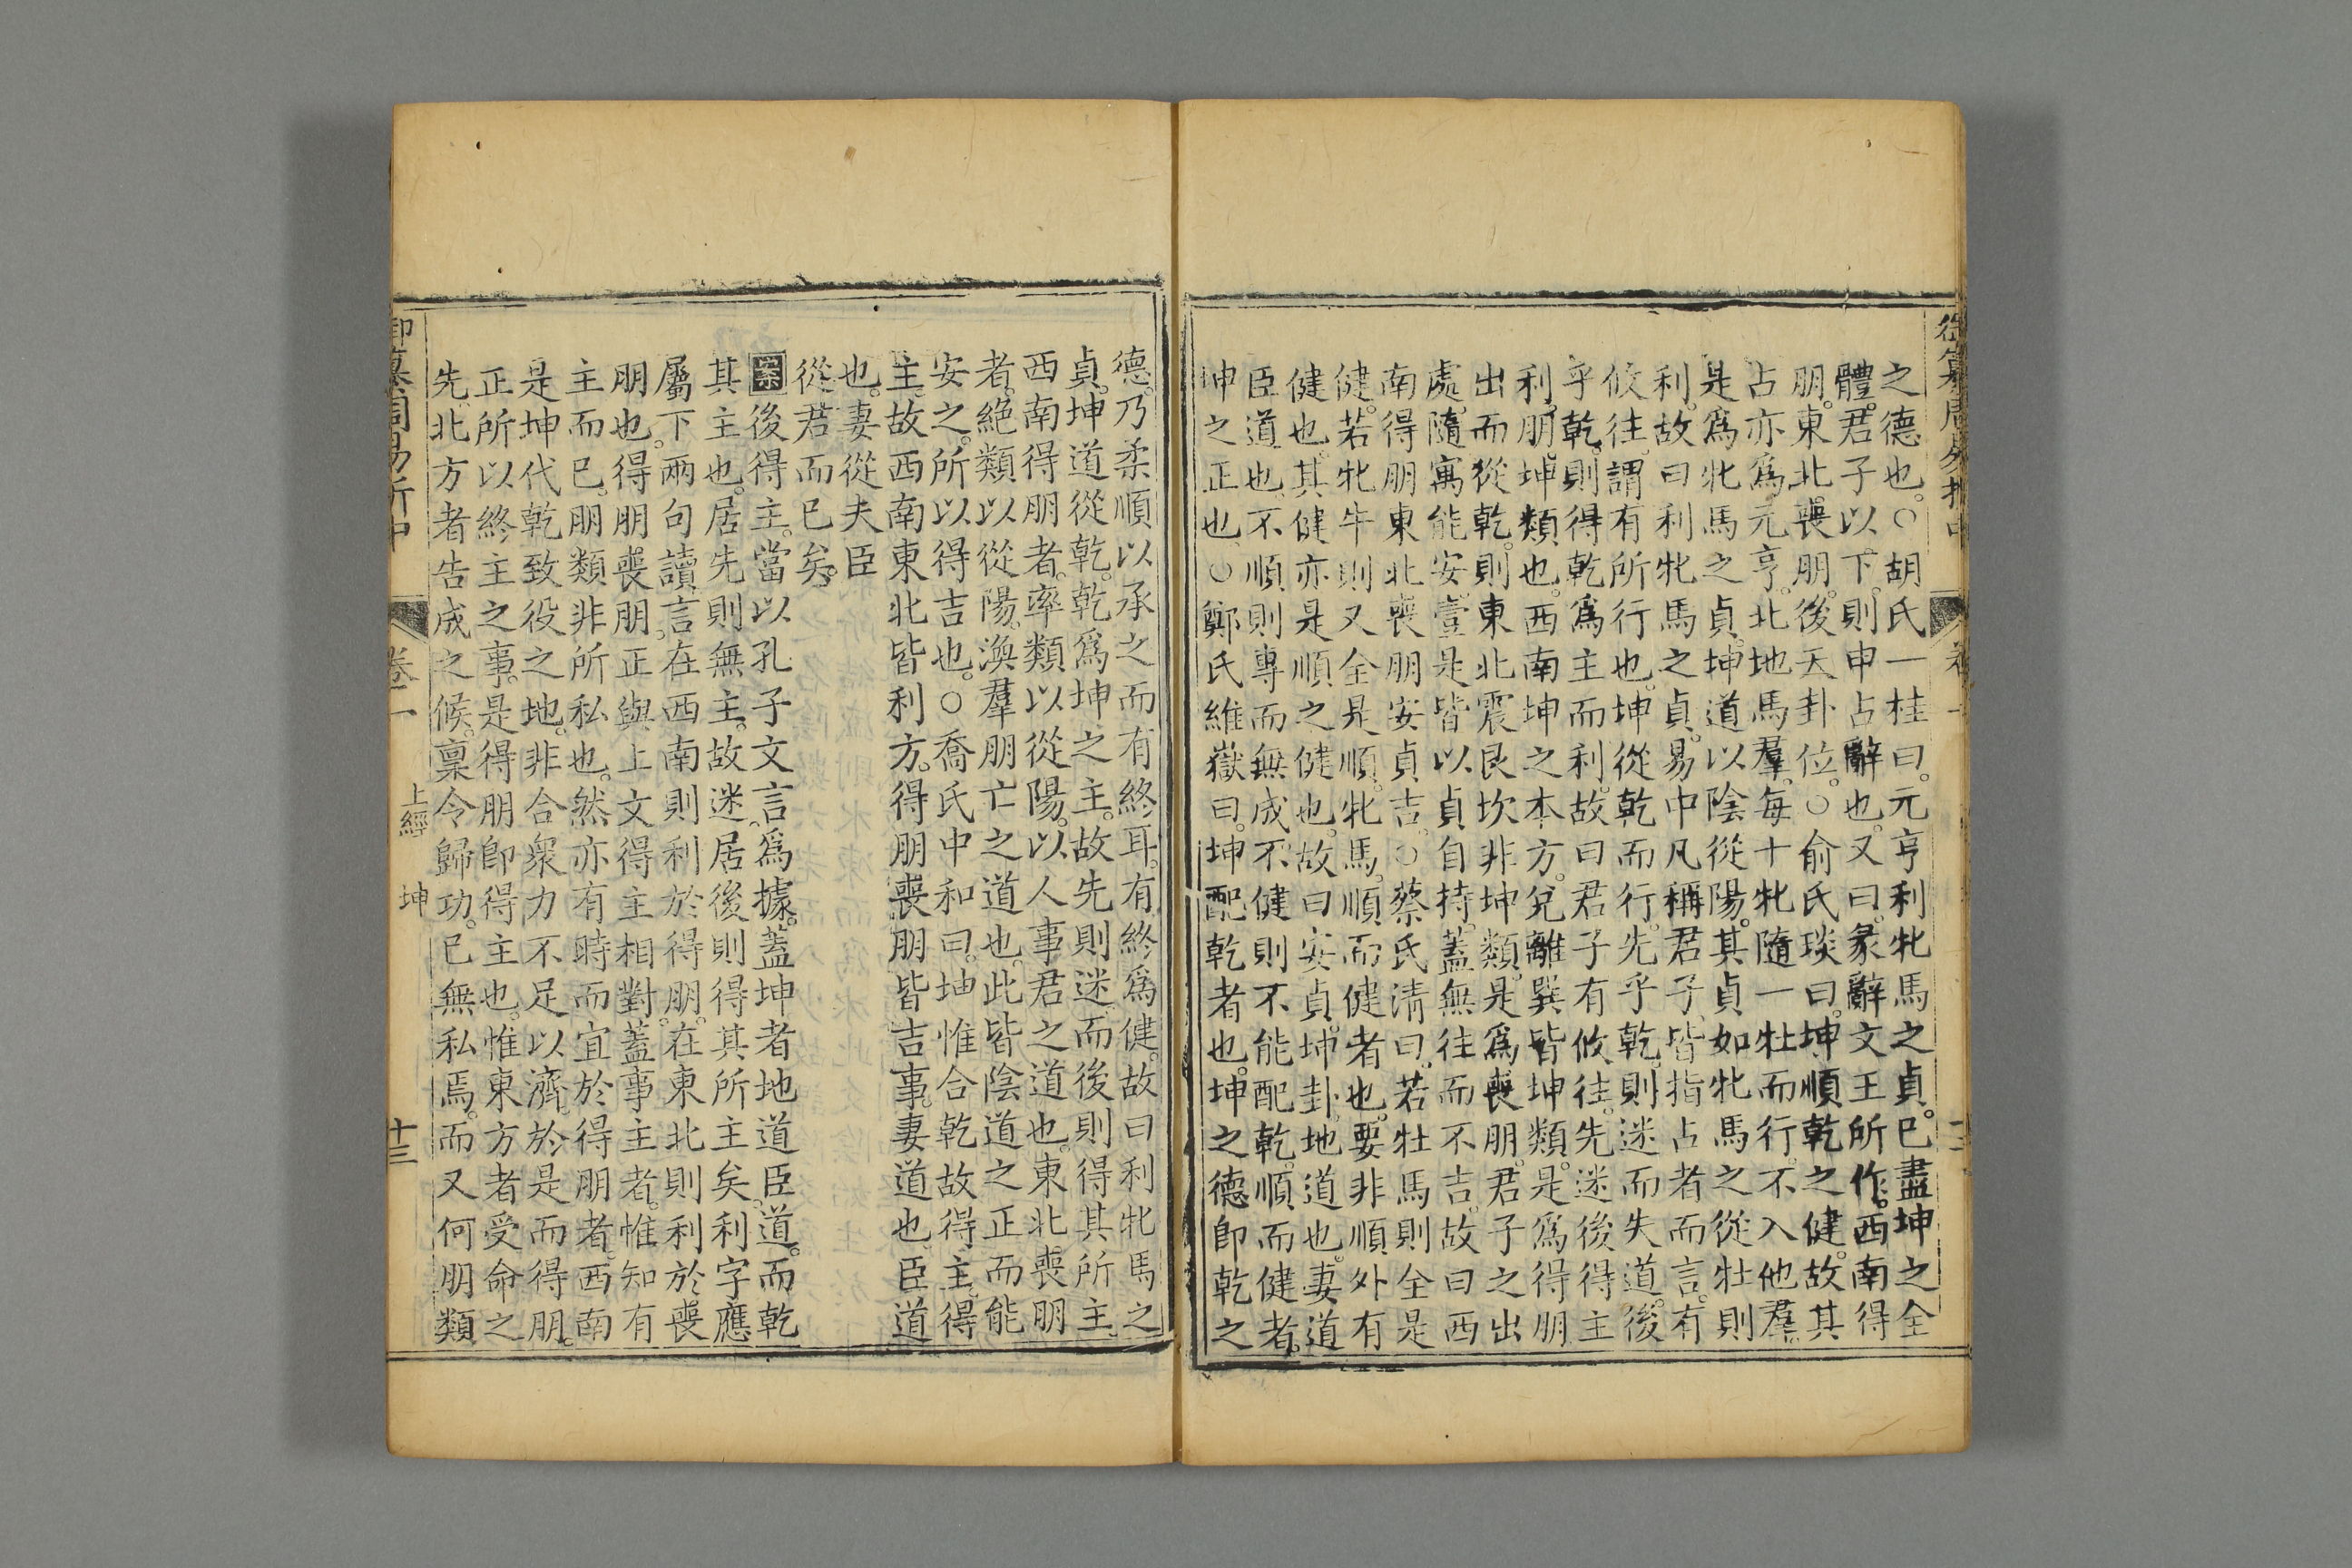 之德也。○胡氏一桂曰。元亨利牝馬之貞。已盡坤之全
體。君子以下。則申占辭也。又曰。彖辭文王所作。西南得
朋。東北。喪朋。後天卦位。○俞氏琰曰。坤順乾之健。故其
占亦爲元亨。北地馬羣。每十牝隨一牡而行。不入他羣。
是爲牝馬之貞。坤道以陰從陽。其貞如牝馬之從牡則
利。故曰利牝馬之貞。易中凡稱君子。皆指占者而言。有
攸往。謂有所行也。坤從乾而行。先乎乾。則迷而失道。後
乎乾。則得乾爲主而利。故曰君子有攸往。先迷後得主
利。朋。坤類也。西南坤之本方。兌離巽皆坤類。是爲得朋
出而從乾。則東北震艮坎非坤類。是爲喪朋。君子之出
處。隨寓能安。壹是皆以貞自持。蓋無往而不吉。故曰西
南得朋東北喪朋安貞吉。○蔡氏清曰。若牡馬則全是
健。若牝牛則又全是順。牝馬。順而健者也。要非順外有
健也。其健亦是順之健也。故曰安貞。坤卦。地道也。妻道
臣道也。不順則專而無成。不健則不能配乾。順而健者。
坤之正也。○鄭氏維嶽曰。坤配乾者也。坤之德卽乾之
德。乃柔順以承之而有終耳。有終爲健。故曰利牝馬之
貞。坤道從乾。乾爲坤之主。故先則迷。而後則得其所主。
西南得朋者。率類以從陽。以人事君之道也。東北。喪朋
者。絕類以從陽。渙羣朋亡之道也。此皆陰道之正而能
安之。所以得吉也。○喬氏中和曰。坤惟合乾。故得主。得
主。故西南東北皆利方。得朋喪朋皆吉事。妻道也。臣道
也。妻從夫臣
從君而已矣。
案後得主。當以孔子文言爲據。蓋坤者地道臣道。而乾
其主也。居先則無主。故迷。居後則得其所主矣。利字應
屬下兩句讀。言在西南則利於得朋。在東北則利於喪
朋也。得朋喪朋。正與上文得主相對。蓋事主者。惟知有
主而已。朋類非所私也。然亦有時而宜於得朋者。西南
是坤代乾致役之地。非合衆力不足以濟。於是而得朋。
正所以終主之事。是得朋卽得主也。惟東方者受命之
先。北方者告成之候。稟令歸功。已無私焉。而又何朋類
御纂周易折中
卷一
上經
坤
十三